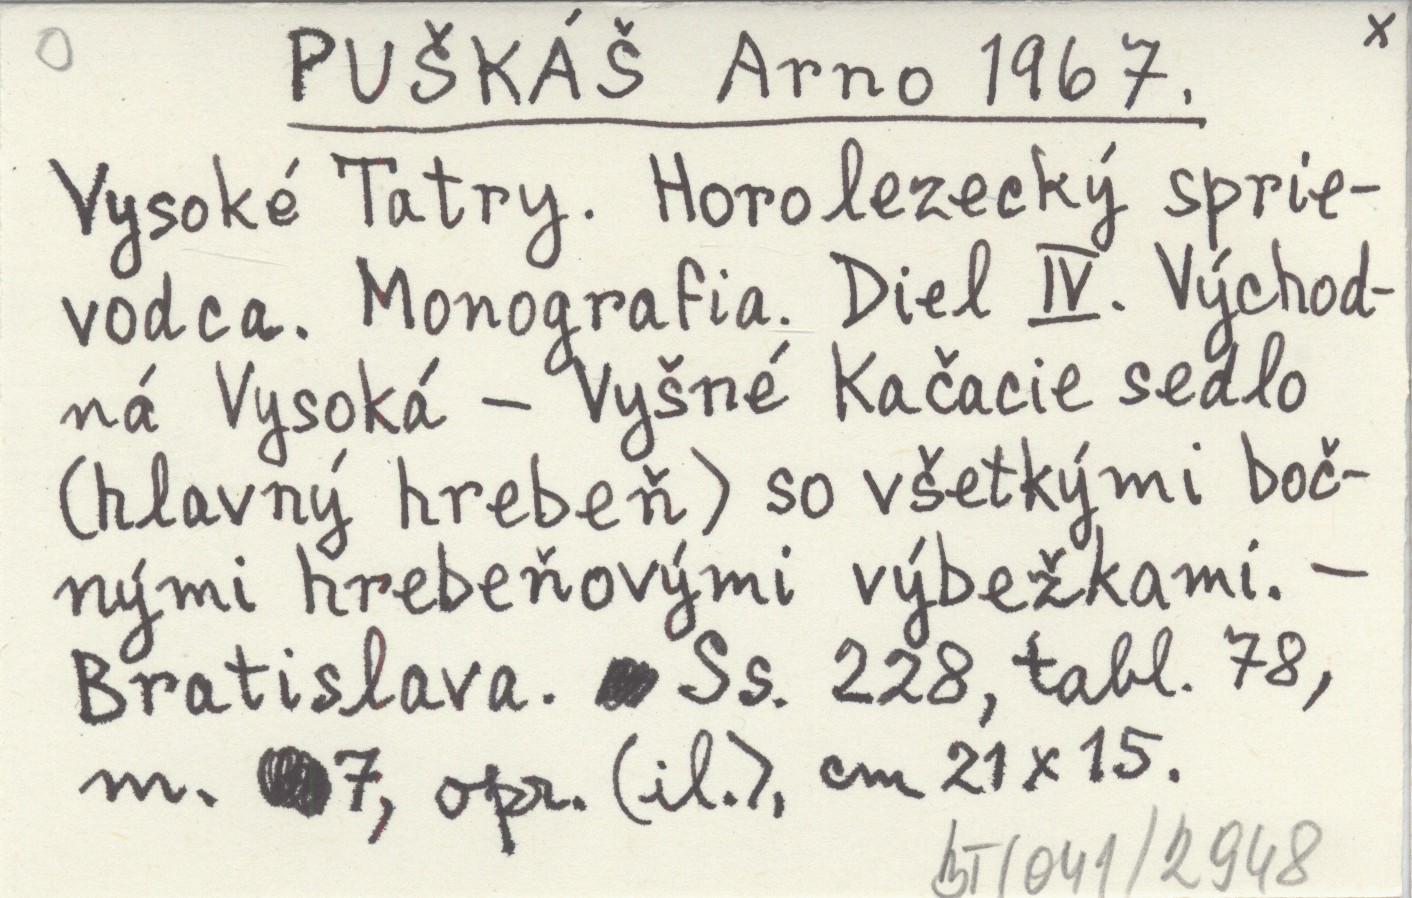 O
x
PUŠKÁŠ Arno 1967.
Vysoké Tatry. Horolezecký sprie-
vodca. Monografia. Diel IV. Východ-
ná Vysoká – Vyšné Kačacie sedlo
(hlavný hrebeň) so všetkými boč-
nými hrebeňovými výbežkami. –
Bratislava. Ss. 228, tabl. 78,
m. 7, opr. (il.), cm 21 x 15.
/041/2948